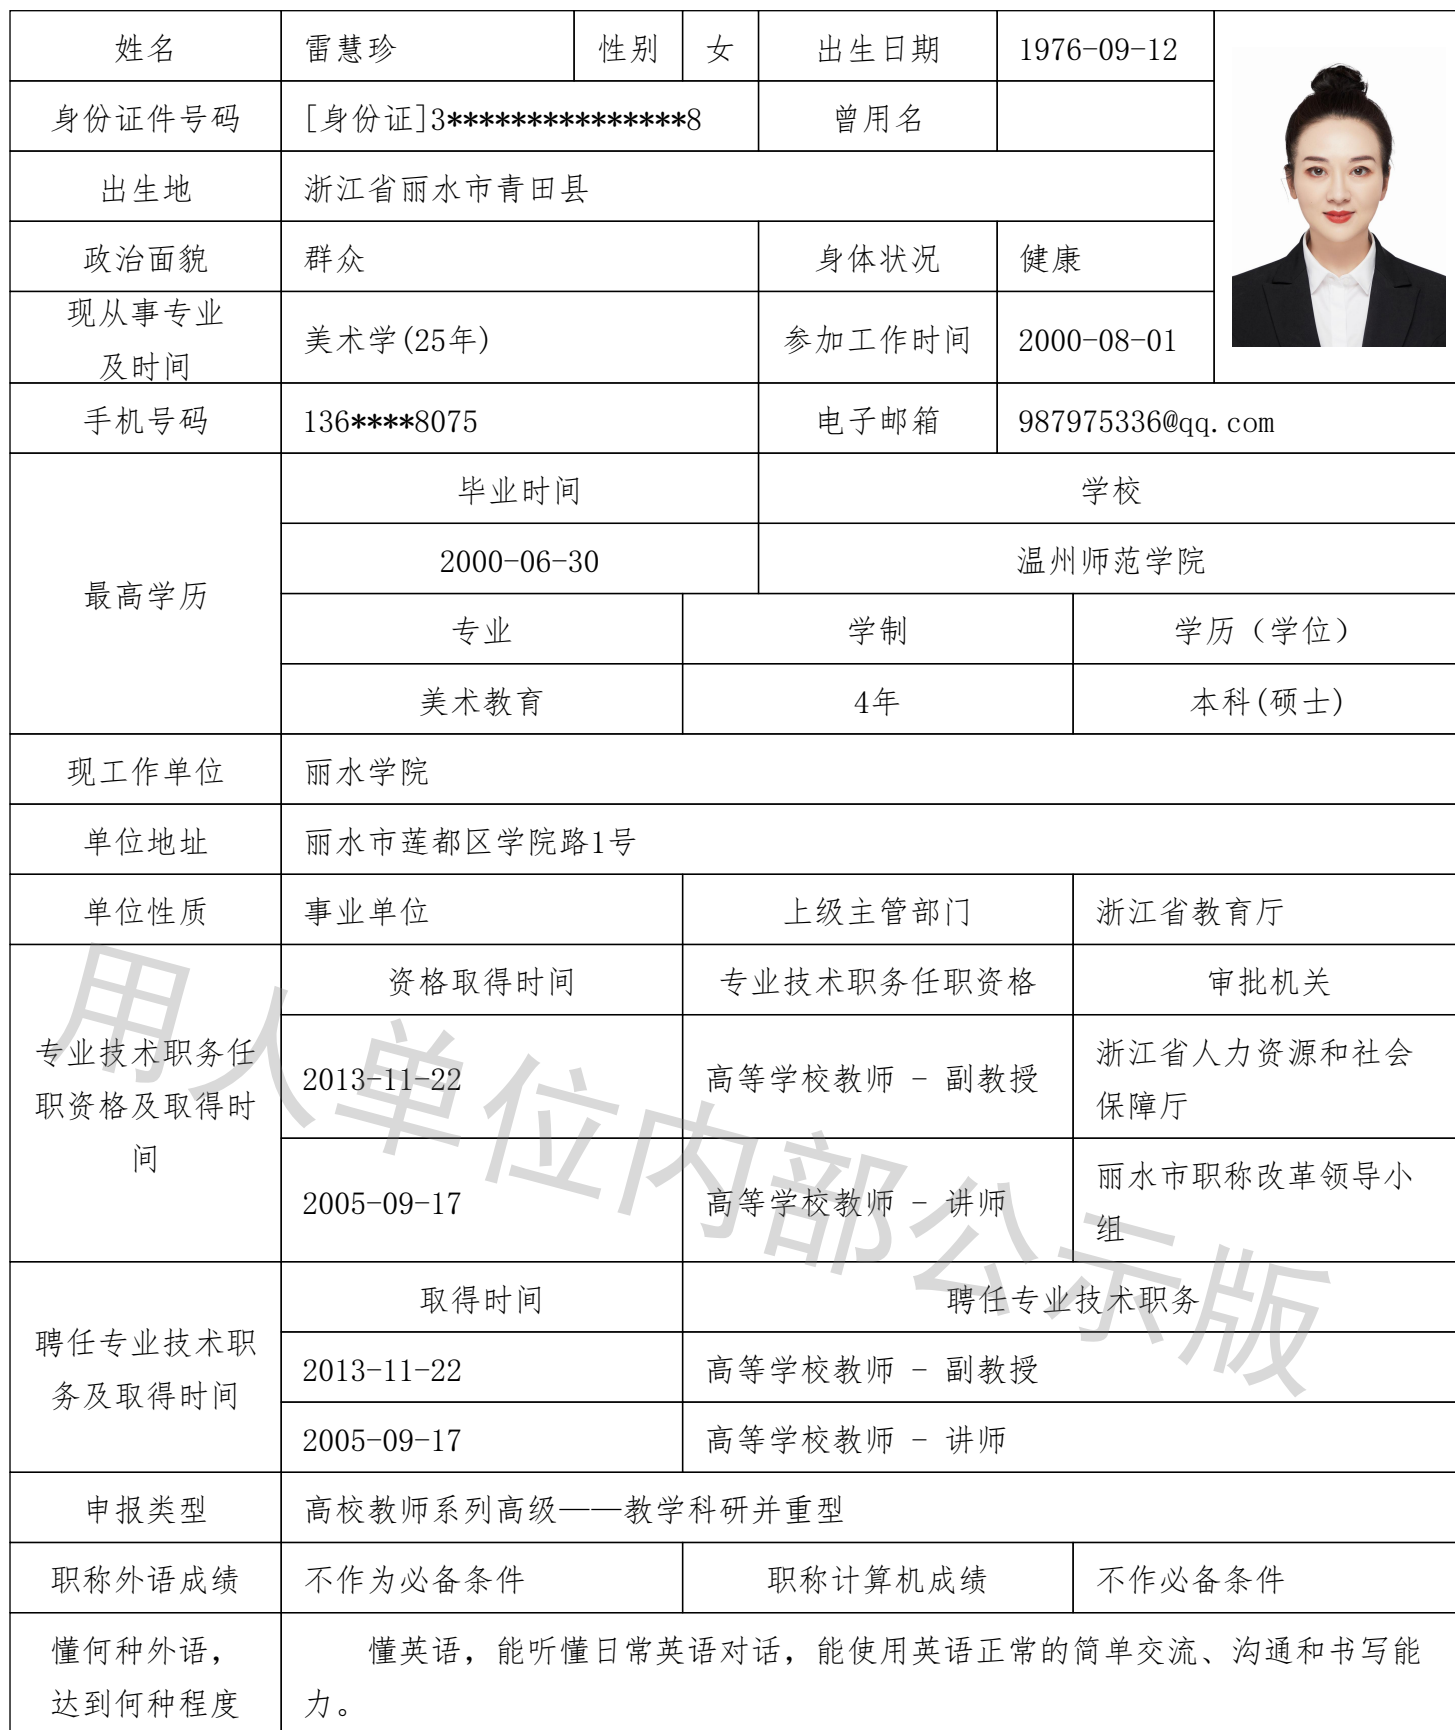 姓名 雷慧珍 性别 女 出生日期 1976-09-12
身份证件号码 [身份证]3***************8 曾用名
出生地 浙江省丽水市青田县
政治面貌 群众 身体状况 健康
现从事专业
及时间
美术学(25年) 参加工作时间 2000-08-01
手机号码 136****8075 电子邮箱 987975336@qq.com
最高学历
毕业时间 学校
2000-06-30 温州师范学院
专业 学制 学历（学位）
美术教育 4年 本科(硕士)
现工作单位 丽水学院
单位地址 丽水市莲都区学院路1号
单位性质 事业单位 上级主管部门 浙江省教育厅
专业技术职务任
职资格及取得时
间
资格取得时间 专业技术职务任职资格 审批机关
2013-11-22 高等学校教师 - 副教授 浙江省人力资源和社会
保障厅
2005-09-17 高等学校教师 - 讲师 丽水市职称改革领导小
组
聘任专业技术职
务及取得时间
取得时间 聘任专业技术职务
2013-11-22 高等学校教师 - 副教授
2005-09-17 高等学校教师 - 讲师
申报类型 高校教师系列高级——教学科研并重型
职称外语成绩 不作为必备条件 职称计算机成绩 不作必备条件
懂何种外语，
达到何种程度
懂英语，能听懂日常英语对话，能使用英语正常的简单交流、沟通和书写能
力。
用人单位内部公示版